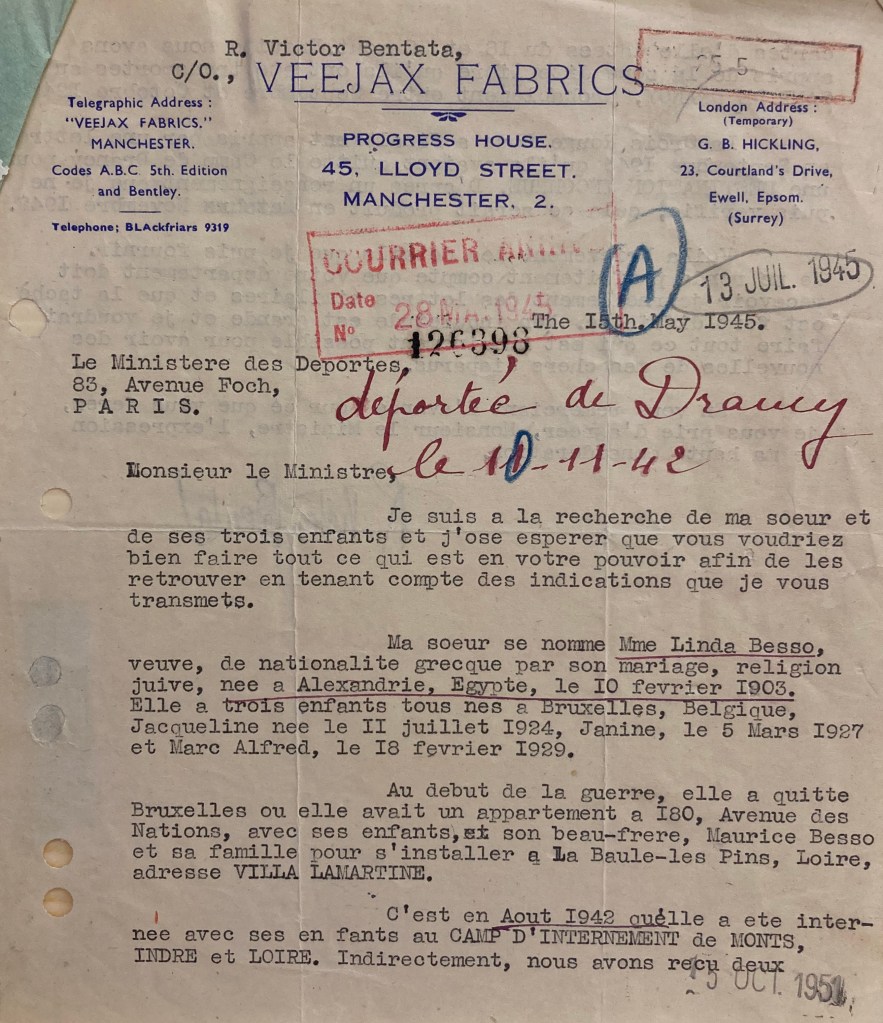 R. Victor Bentata,
C/O., VEEJAX FABRICS
Telegraphic Address :
"VEEJAX FABRICS."
MANCHESTER.
Codes A.B.C 5th. Edition
and Bentley.
Telephone; BLAckfriars 9319
PROGRESS HOUSE.
45, LLOYD STREET.
MANCHESTER. 2.
London Address :
(Temporary)
G. B. HICKLING,
23, Courtland's Drive,
Ewell, Epsom.
(Surrey)
COURRIER
Date 28 1945
N° 126398
A
13 JUIL. 1945
The I5th. May I945.
Le Ministere des Deportes,
83, Avenue Foch,
P A R I S.
déportée de Drancy
le 11-11-42
Monsieur le Ministre,
Je suis a la recherche de ma soeur et
de ses trois enfants et j'ose esperer que vous voudriez
bien faire tout ce qui est en votre pouvoir afin de les
retrouver en tenant compte des indications que je vous
transmets.
Ma soeur se nomme Mme Linda Besso,
veuve, de nationalite grecque par son mariage, religion
juive, nee a Alexandrie, Egypte, le IO fevrier I903.
Elle a trois enfants tous nes a Bruxelles, Belgique,
Jacqueline nee le II juillet I924, Janine, le 5 Mars I927
et Marc Alfred, le I8 fevrier I929.
Au debut de la guerre, elle a quitte
Bruxelles ou elle avait un appartement a I80, Avenue des
Nations, avec ses enfants, et son beau-frere, Maurice Besso
et sa famille pour s'installer a La Baule-les Pins, Loire,
adresse VILLA LAMARTINE.
C'est en Aout I942 quélle a ete inter-
nee avec ses en fants au CAMP D'INTERNEMENT de MONTS,
INDRE et LOIRE. Indirectement, nous avons reçu deux
OCT. 1951